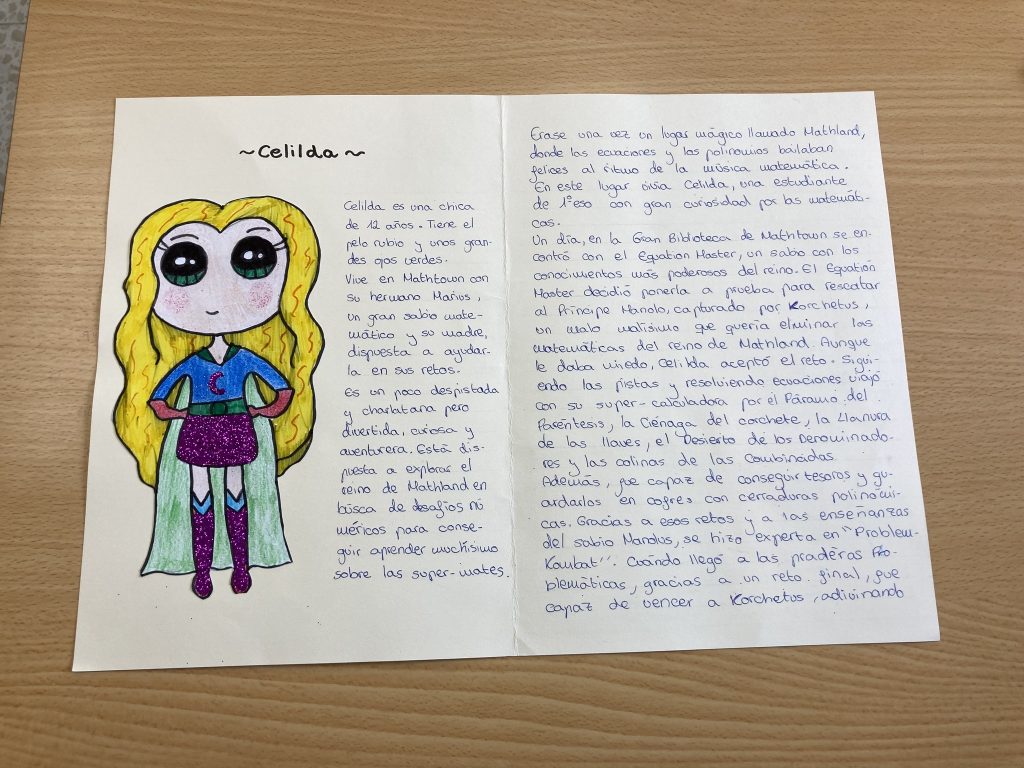 ~Celilda~
Celilda es una chica
de 12 años. Tiene el
pelo rubio y unos gran-
des ojos verdes.
Vive en Mathtown con
su hermano Marius,
un gran sabio mate-
mático y su madre,
dispuesta a ayudar-
la en sus retos.
Es un poco despistada
y charlatana pero
divertida, curiosa y
aventurera. Está dis-
puesta a explorar el
reino de Mathland en
búsca de desafíos nú
méricos para conse-
guir aprender muchísimo
sobre las super-mates.
Erase una vez un lugar mágico llamado Mathland,
donde las ecuaciones y los polinomios bailaban
felices al ritmo de la música matemática.
En este lugar vivía Celilda, una estudiante
de 1ºeso con gran curiosidad por las matemáti-
cas.
Un día, en la Gran Biblioteca de Mathtown se en-
contró con el Equation Master, un sabio con los
conocimientos más poderosos del reino. El Equation
Master decidió ponerla a prueba para rescatar
al Príncipe Manolo, capturado por Korchetus,
un malo malísimo que quería eliminar las
matemáticas del reino de Mathland. Aunque
le daba miedo, Celilda aceptó el reto. Sigui-
endo las pistas y resolviendo ecuaciones viajó
con su super-calculadora por el Páramo del
Paréntesis, la Ciénaga del corchete, la Llanura
de las llaves, el Desierto de los Denominado-
res y las colinas de las Combinadas.
Además, fue capaz de conseguir tesoros y gu-
ardarlos en cofres con cerraduras polinómi-
cas. Gracias a esos retos y a las enseñanzas
del sabio Marius, se hizo experta en "Problem-
Kombat". Cuándo llegó a las praderas Pro-
blemáticas, gracias a un reto final, fue
capaz de vencer a Korchetus, adivinando